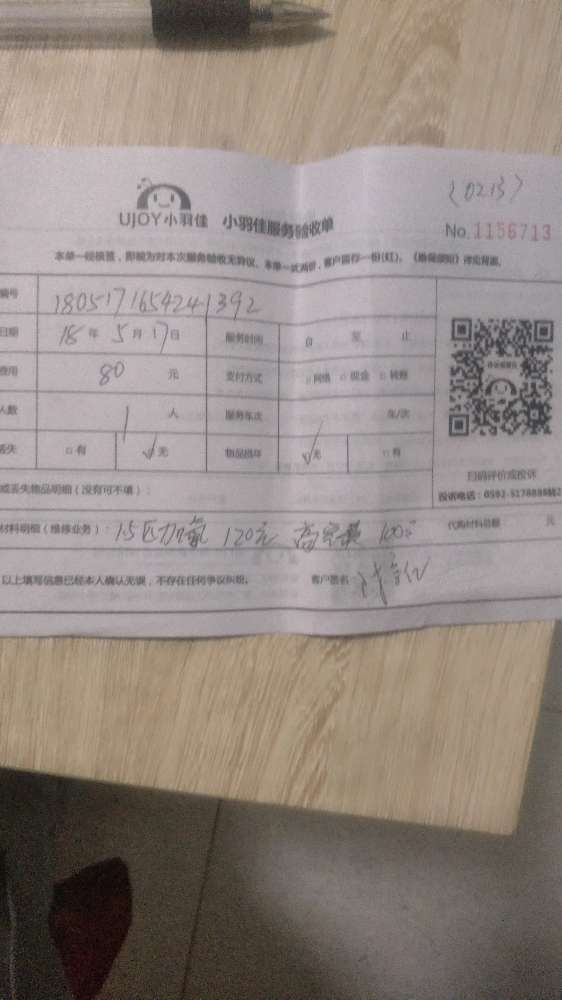 (0213)
UJOY小羽佳 小羽佳服务验收单
No.1156713
本单一经填签，即视为对本次服务验收无异议。本单一式两份，客户留存一份(红)。
编号 1805171654241392
日期 18 年 5 月 17 日 服务时间 自 至 止
费用 80 元 支付方式 □网络 □现金 □转账
人数 1 人 服务车次 车/次
丢失 □有 √无 物品损坏 √无 □有
扫码评价或投诉
或丢失物品明细（没有可不填）：
材料明细（维修业务）： 1.5匹加氟 120元 高空费 100元 代购材料总额 元
以上填写信息已经本人确认无误，不存在任何争议纠纷。 客户签名：